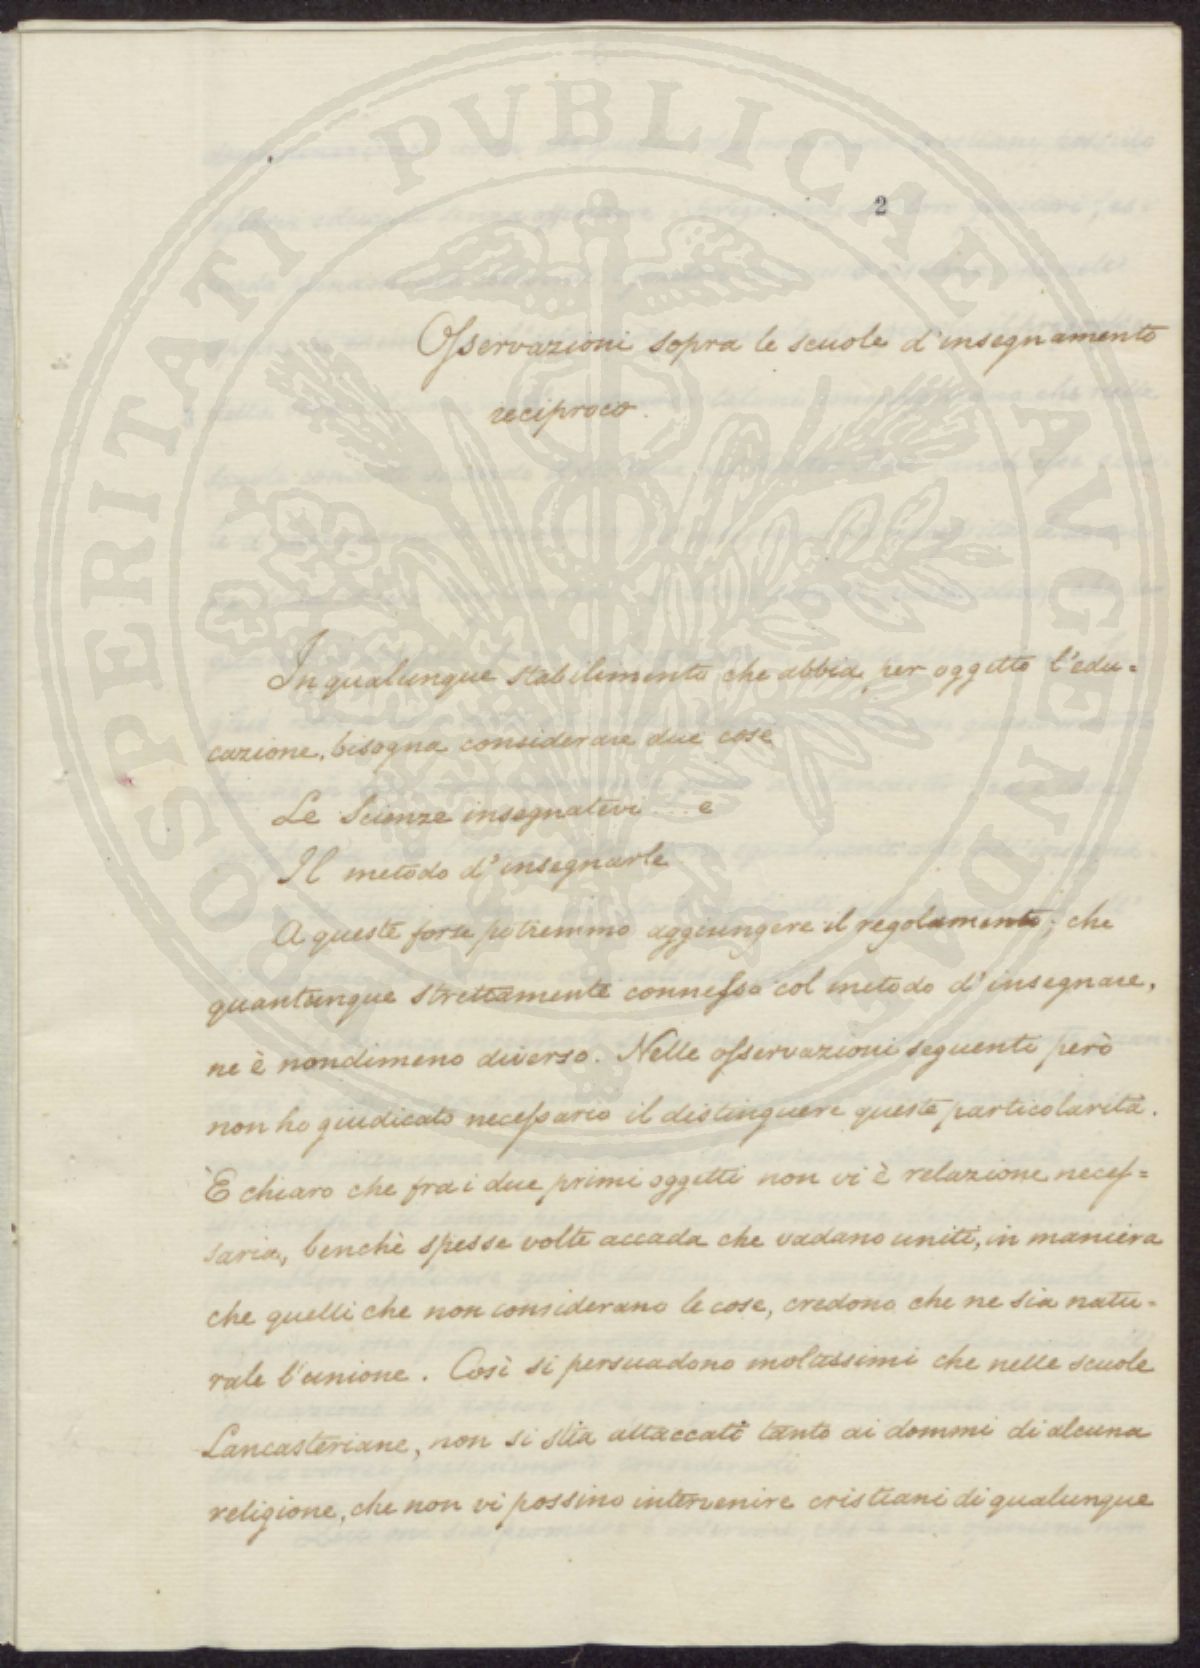 PROSPERITATI PUBLICAE AVGENDAE
2
Osservazioni sopra le scuole d'insegnamento
reciproco.
In qualunque stabilimento che abbia per oggetto l'edu-
cazione, bisogna considerare due cose
Le Scienze insegnatevi e
Il metodo d'insegnarle
A queste forse potremmo aggiungere il regolamento; che
quantunque strettamente connesso col metodo d'insegnare,
ne è nondimeno diverso. Nelle osservazioni seguenti però
non ho giudicato necessario il distinguere queste particolarità.
È chiaro che fra i due primi oggetti non vi è relazione neces=
saria, benchè spesse volte accada che vadano uniti, in maniera
che quelli che non considerano le cose, credono che ne sia natu-
rale l'unione. Così si persuadono moltissimi che nelle scuole
Lancasteriane, non si stia attaccati tanto ai dommi di alcuna
religione, che non vi possino intervenire cristiani di qualunque